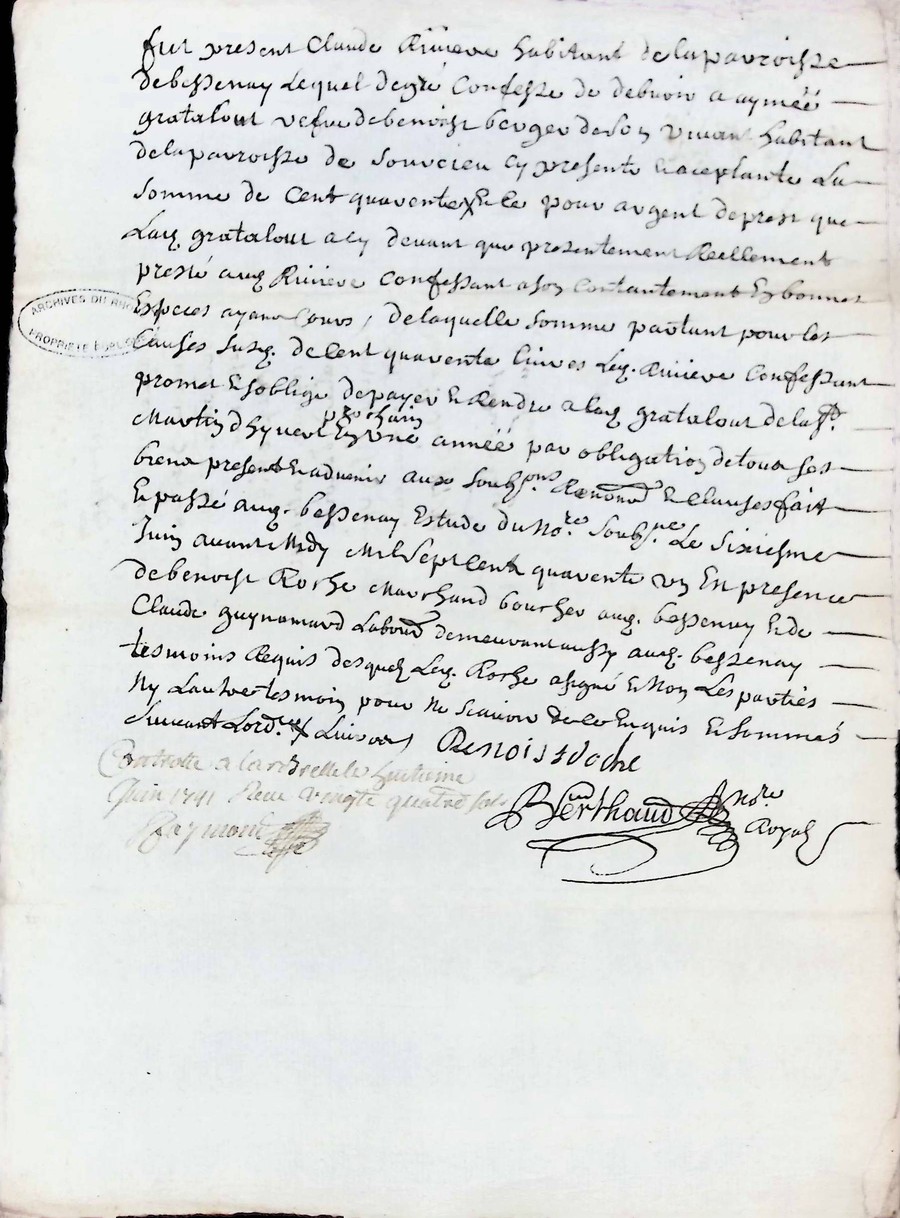 fut present Claude Riviere habitant de la parroisse
de bessenay Lequel de gré Confesse de debvoir a aymée
gratalout vefve de benoist berger de son vivant habitant
de la parroisse de Sourcieu cy presente Et aceptante La
Somme de Cent quarente pour argent de prest que
Lad. gratalout a cy devant que presentement Reellement
presté aud. Riviere Confessant a son Contantement En bonnes
Especes ayant Cours, de laquelle Somme partant pour les
Causes susd. de Cent quarente livres Led. Riviere Confessant
promet Et soblige de payer Et Rendre a lad. gratalout de la st.
Martin dhyvert prochain En une année par obligation de tous ses
biens present Et advenir aux Soubsons. Renond. Et Clauses fait
Et passé aud. bessenay Estude du Nore. Soubsne. Le Sixiesme
Juin avant Midy Mil Sept Cent quarente un En presence
de benoist Roche Marchand boucher aud. bessenay Et de
Claude guynamard Labour demeurant aussy aud. bessenay
tesmoins Requis desquels Led. Roche a signé Et Non Les parties
Ny Lautre tesmoin pour Ne Scavoir de ce Enquis Et Sommés
Suivant Lordce. X Livres Benoist Roche
Controllé a Larbresle le huitieme
Juin 1741 Receu vingte quatre sols
Raymond
Berthaud Nore
Royal
ARCHIVES DU RHONE
PROPRIÉTÉ PUBLIQUE